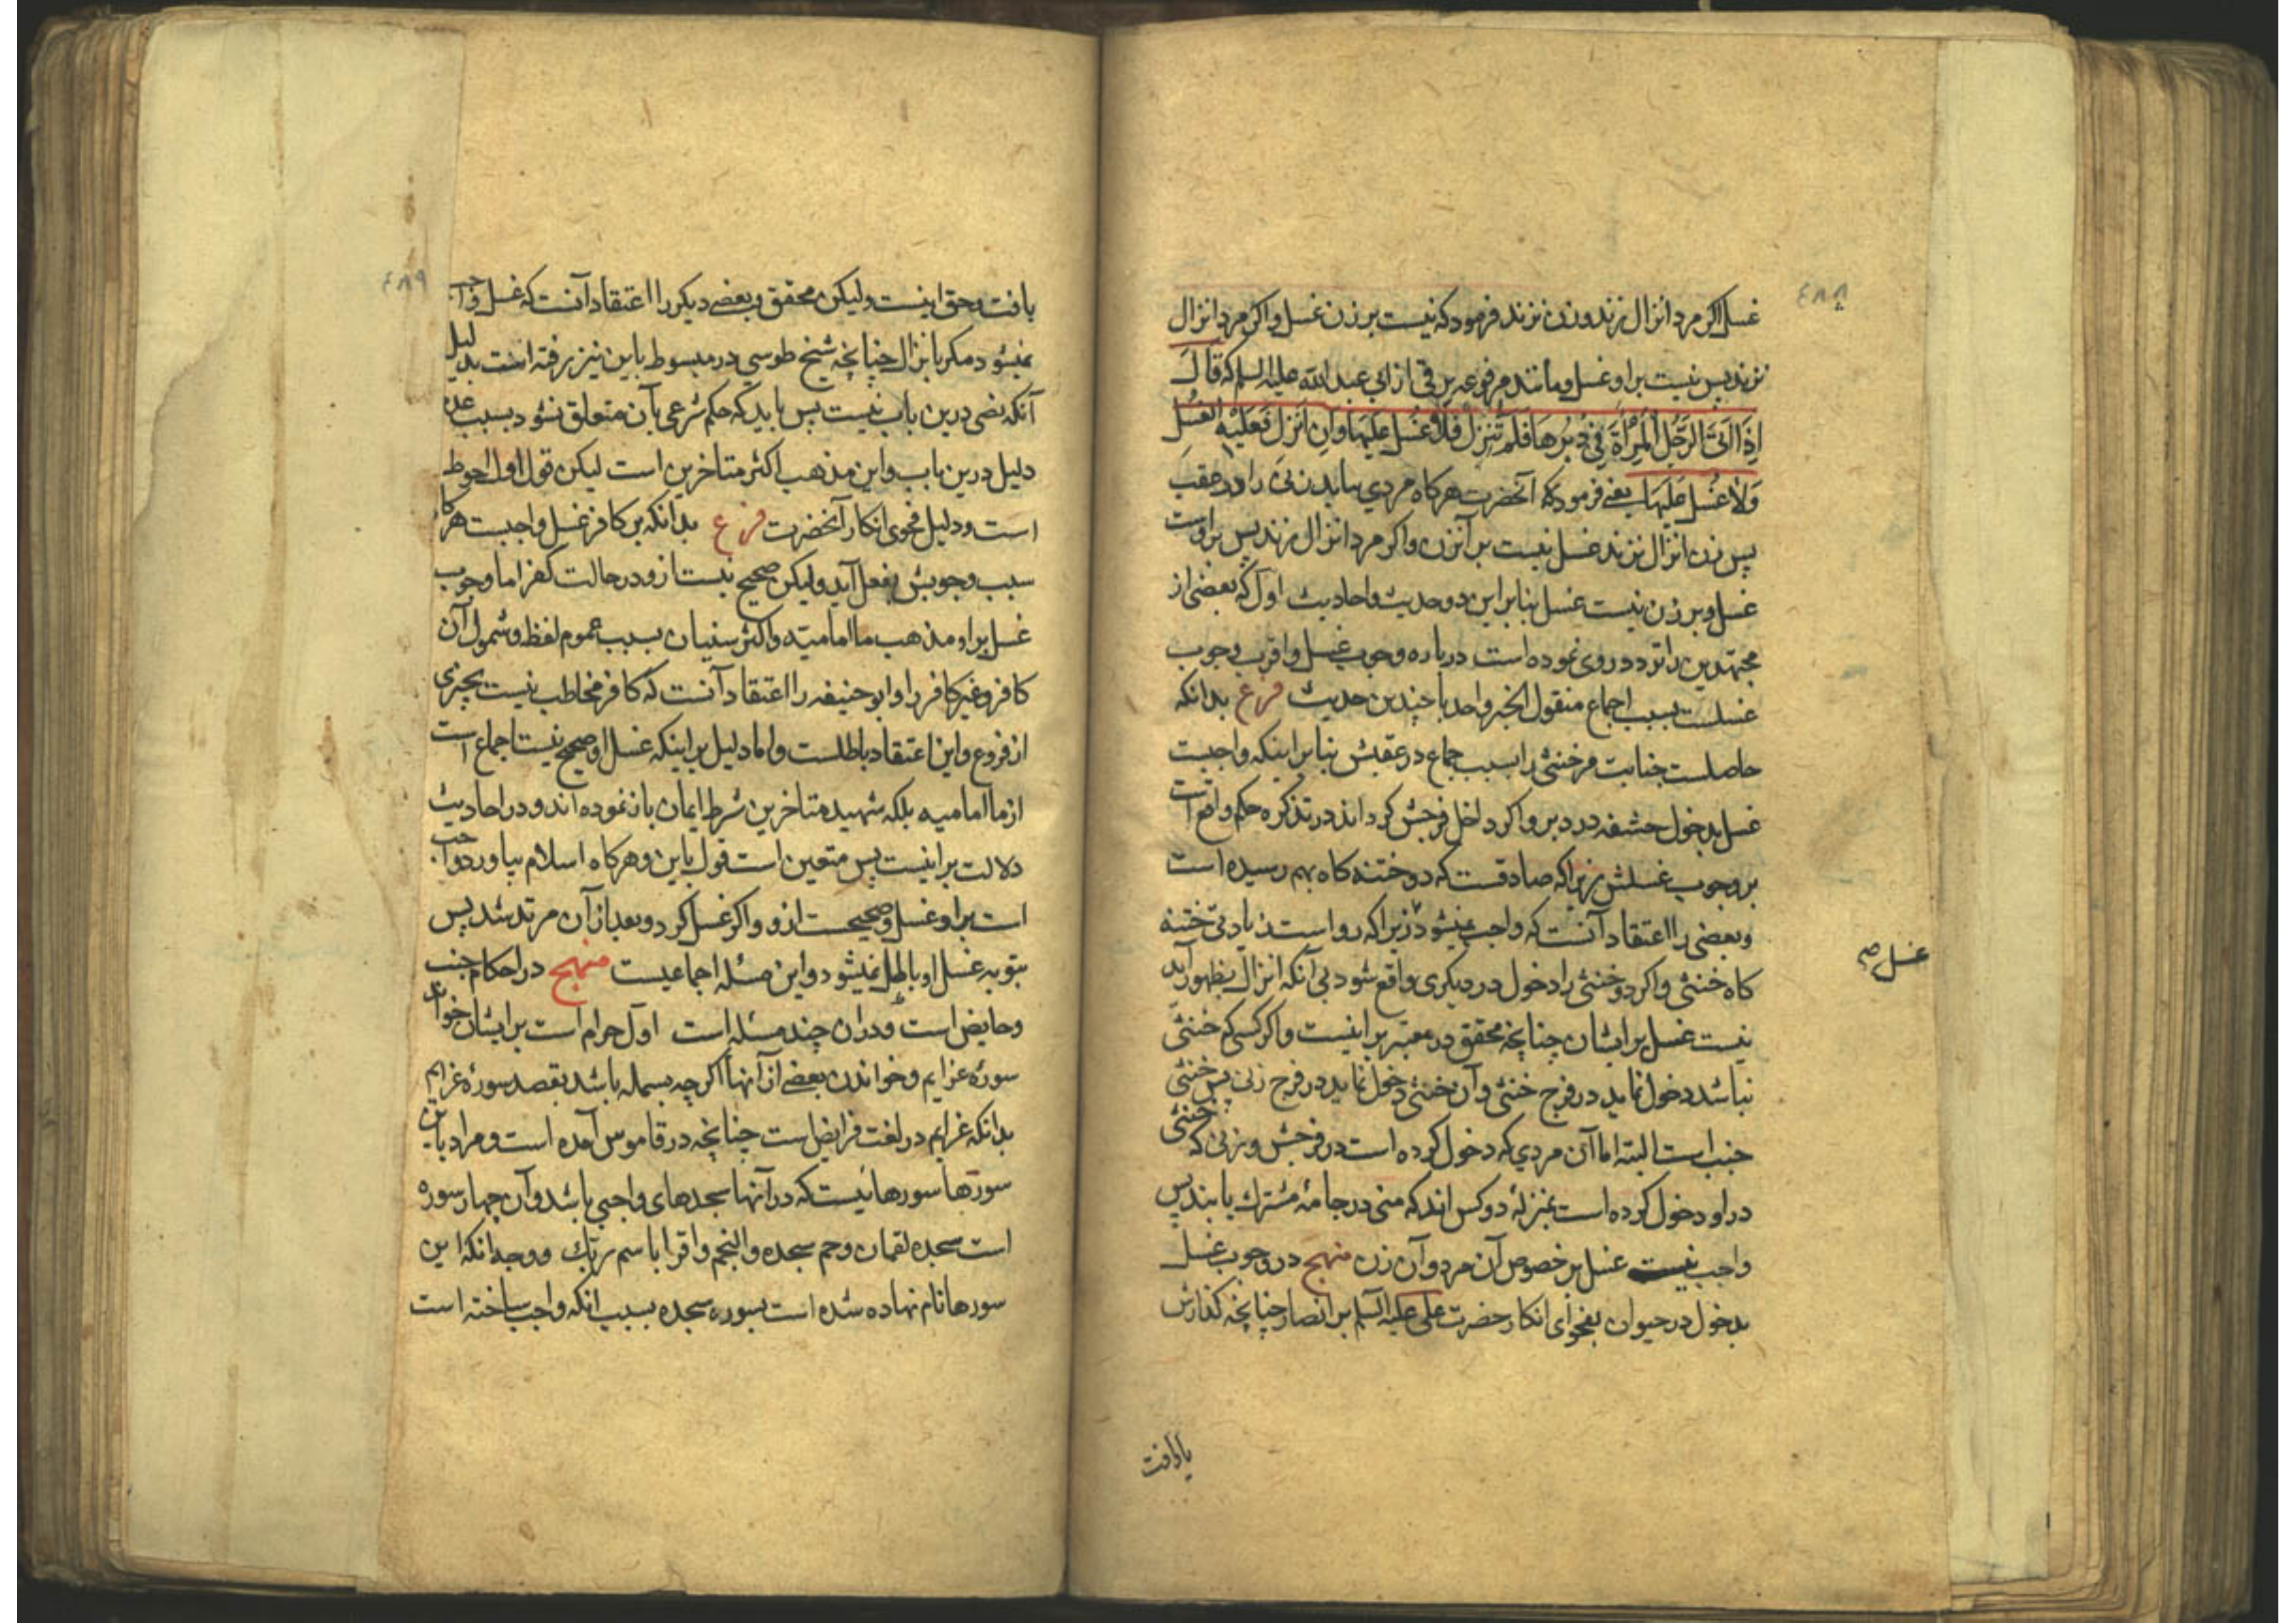 ٤٨٨
غسل اکر مرد انزال نزند و زن نزند فرمود که نیست بر زن غسل و اکر مرد انزال
نزند پس نیست بر او غسل و مانند مرفوعه برقی از ابی عبد الله علیه السلم که قالَ
اِذَا اَتَیَ الرَّجُل المَرْاَةَ فِی دُبُرِهَا فَلَم تنزِل فَلا غُسل عَلَیهَا وَاِن اَنزل فَعَلَیْهِ الغسُل
وَلا غُسل عَلَیهَا یعنی فرمود که آنحضرت هر کاه مردی بیاید زنی را در عقب
پس زن انزال نزند غسل نیست بر آنزن و اکر مرد انزال زند پس بر اوست
غسل و بر زن نیست غسل بنابر این دو حدیث و احادیث اول که بعضی از
مجتهدین را تردد روی نموده است درباره وجوب غسل و اقرب وجوب
غسلست بسبب اجماع منقول الخبر واحد با چندین حدیث فرع بدانکه
حاصلست جنابت مر خنثی را بسبب جماع در عقبش بنابر اینکه واجبست
غسل بدخول حشفه در دبر و اکر داخل فرجش کرداند در تذکره حکم واقع است
بر وجوب غسلش زیرا که صادقست که دو ختنه کاه بهم رسیده است
و بعضی را اعتقاد آنست که واجب نمیشود زیرا که رواست زیادتی ختنه
کاه خنثی و اکر دو خنثی را دخول در دیکری واقع شود بی آنکه انزال بظهور آید
نیست غسل بر ایشان چنانچه محقق در معتبر بر اینست و اکر کسی که خنثی
نباشد دخول نماید در فرج خنثی و آن خنثی دخول نماید در فرج زنی پس خنثی
جنب است البته اما آن مردی که دخول کرده است در فرجش و زنی که خنثی
در او دخول کرده است بمنزلهٔ دو کس اند که منی در جامهٔ مشترک یابند پس
واجب نیست غسل بر خصوص آن مرد و آن زن منهج در وجوب غسل
بدخول در حیوان بفحوای انکار حضرت علی علیه السلم بر انصار چنانچه کذارش
غسل صح
یافت
٤٨٩
یافت و حق اینست ولیکن محقق و بعضی دیکر را اعتقاد آنست که غسل واجب
نمیشود مکر بانزال چنانچه شیخ طوسی در مبسوط باین نیز رفته است بدلیل
آنکه نصی درین باب نیست پس باید که حکم شرعی بآن متعلق نشود بسبب عدم
دلیل درین باب و این مذهب اکثر متاخرین است لیکن قول اول احوط
است و دلیل فحوی انکار آنحضرت فرع بدانکه بر کافر غسل واجبست هرکاه
سبب وجوبش بفعل آید ولیکن صحیح نیست ازو در حالت کفر اما وجوب
غسل بر او مذهب ما امامیّه و اکثر سنیان بسبب عموم لفظ و شمول آن
کافر و غیر کافر را و ابو حنیفه را اعتقاد آنست که کافر مخاطب نیست بچیزی
از فروع و این اعتقاد باطلست و اما دلیل بر اینکه غسل او صحیح نیست اجماع است
از ما امامیه بلکه شهید متاخرین شرط ایمان بان نموده اند و در احادیث
دلالت بر اینست پس متعین است قول باین و هرکاه اسلام بیاورد واجب
است بر او غسل و صحیحست ازو و اکر غسل کرد و بعد از آن مرتد شد پس
بتوبه غسل او باطل نمیشود و این مسئله اجماعیست منهج در احکام جنب
و حایض است و دران چند مسئله است اول حرام است بر ایشان خواندن
سورهٔ عزایم و خواندن بعضی از آنها اکرچه بسمله باشد بقصد سورهٔ عزایم
بدانکه عزایم در لغت فرایض است چنانچه در قاموس آمده است و مراد باین
سورتها سورهائیست که در آنها سجدهای واجبی باشد و آن چهار سوره
است سجده لقمان و حم سجده و النجم و اقرا باسم ربّک و وجه انکه این
سورها نام نهاده شده است بسوره سجده بسبب انکه واجب ساخته است